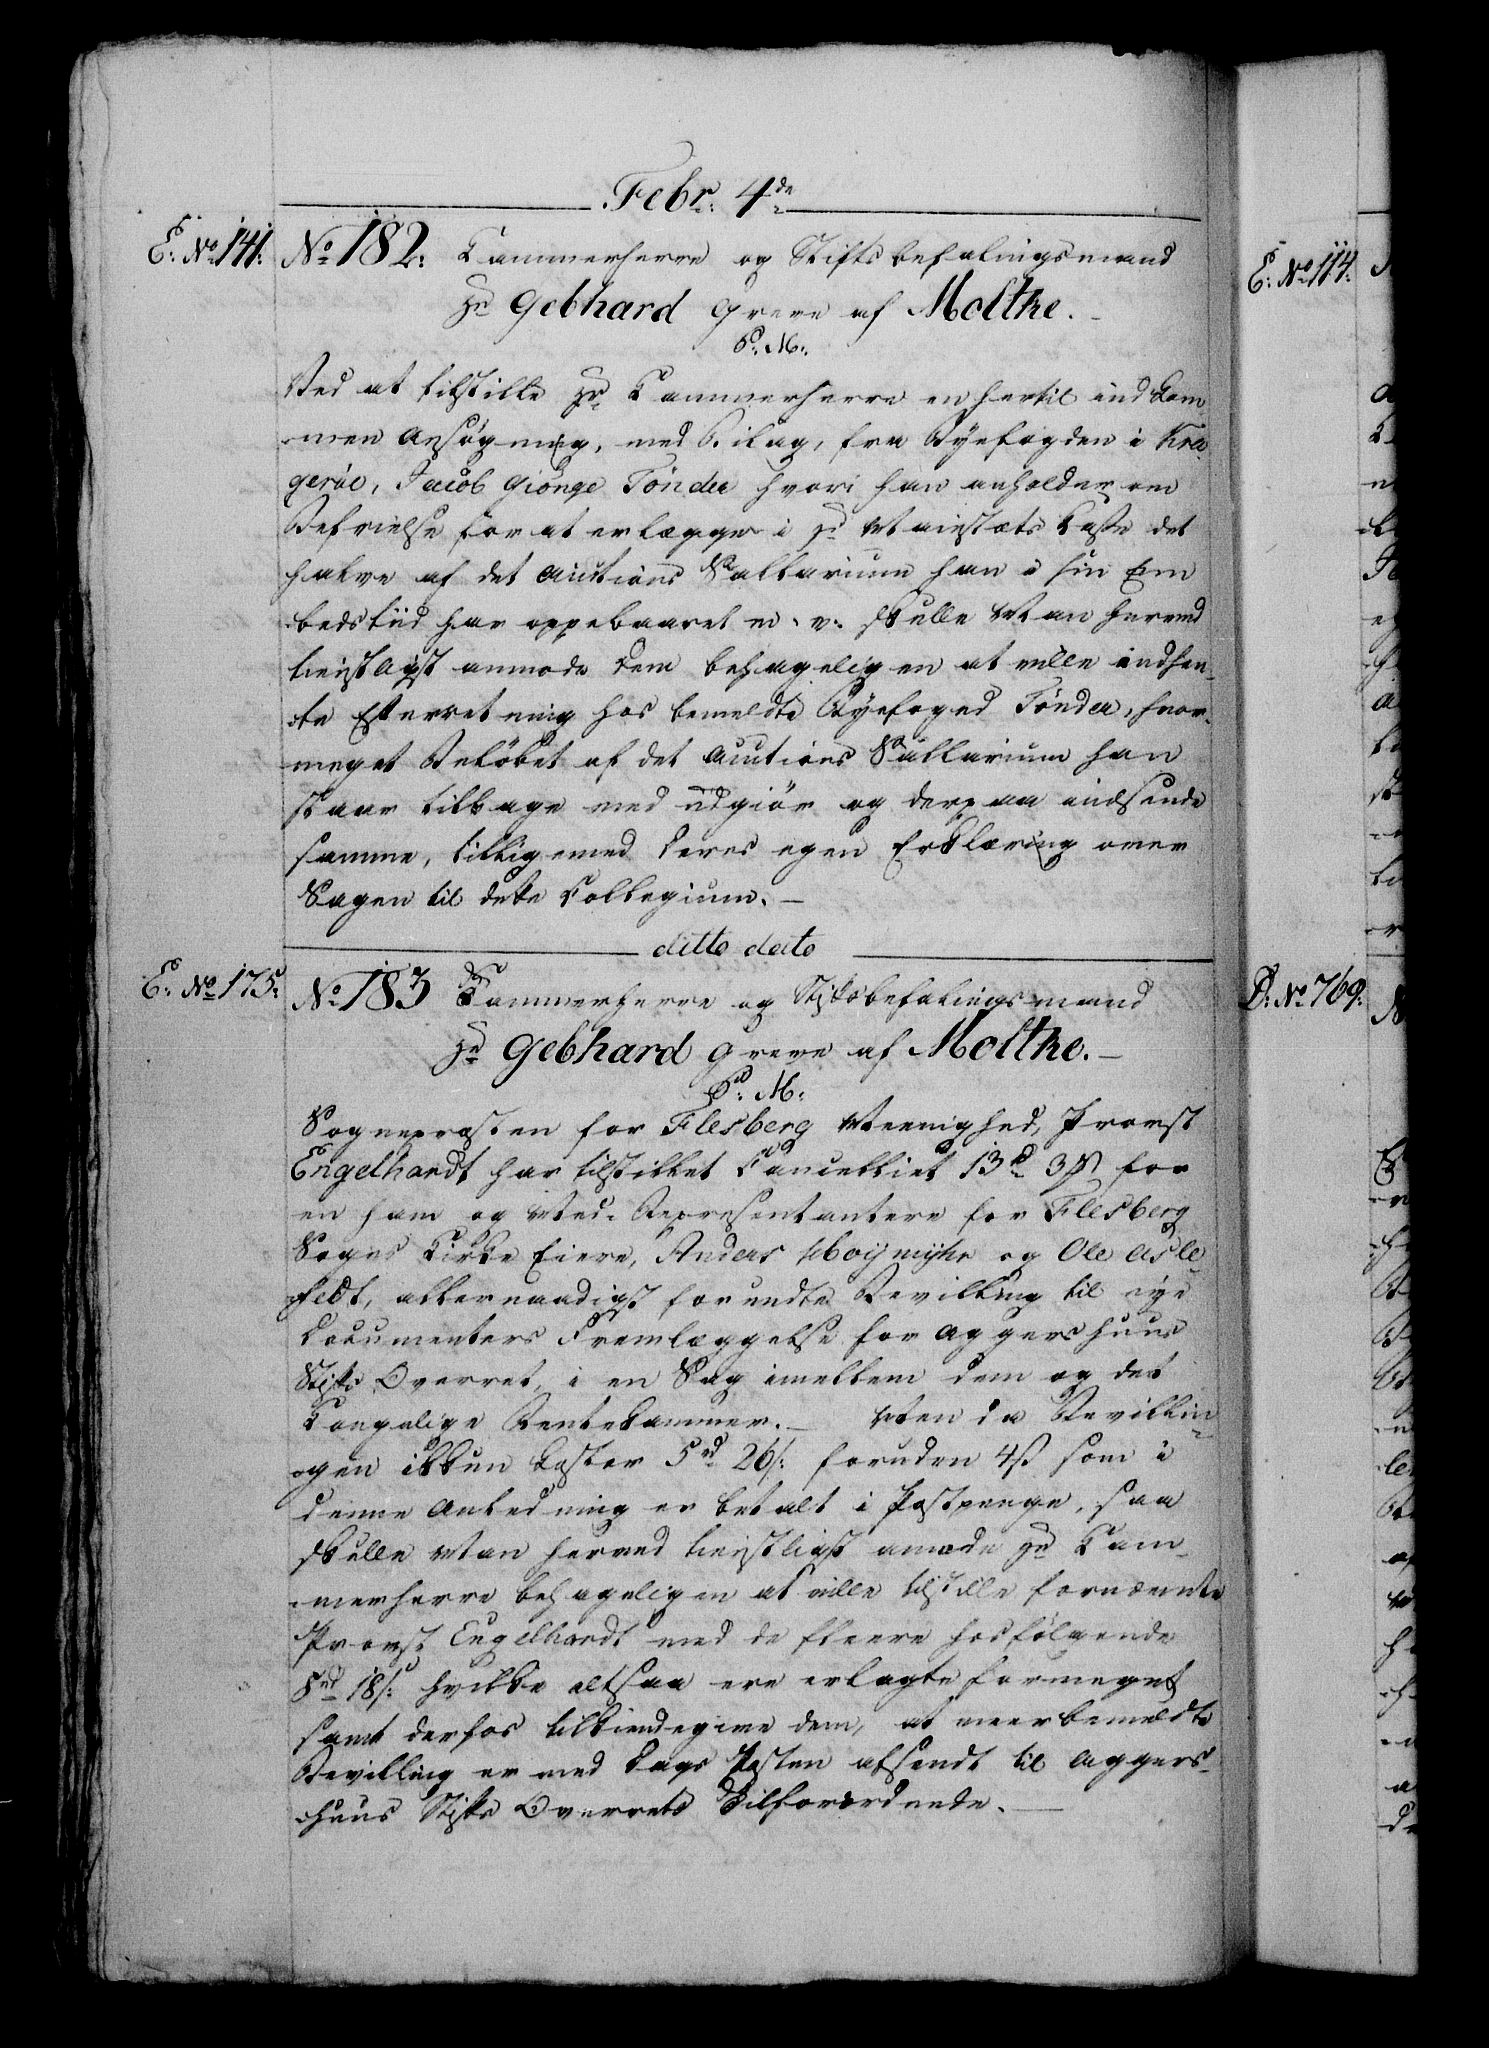 Febr: 4de
E: No 141: No 182: Kammerherre og Stiftsbefalingsmand
Hr Gebhard Greve af Moltke.
P: M:
Ved at tilstille Hr Kammerherre en hertil indkom-
men Ansøgning, med Bilag, fra Byefogden i Kra-
gerøe, Jacob Giønge Tønder hvori han anholder om
Befrielse for at erlægge i Hs Maiestæts Kasse det
halve af det Auctions Sallarium han i sin Em-
bedstiid har oppebaaret m. v. skulle Man herved
tienstligst anmode Dem behageligen at ville indhen-
te Efterretning hos bemeldte Byefoged Tønder, hvor-
meget Beløbet af det Auctions Sallarium han
staar tilbage med udgiør og derpaa indsende
samme, tilligemed Deres egen Erklæring over
Sagen til dette Collegium.
ditto dato
E: No 175: No 183 Kammerherre og Stiftsbefalingsmand
Hr Gebhard Greve af Moltke.
P: M:
Sognepræsten for Flesberg Meenighed, Provst
Engelhardt har tilstillet Cancelliet 13rd 3ß for
en ham og Med-Repræsentantere for Flesberg
Sogns Kirke Eiere, Anders og Ole Asle-
feldt, allernaadigst forundte Bevilling til nye
Documenters Fremlæggelse for Aggershuus
Stifts Overret, i en Sag imellem dem og det
Kongelige Rentekammer. Men da Bevillin-
gen ikkun koster 5rd 26ß: foruden 4ß som i
denne Anledning er betalt i Postpenge, saa
skulle Man herved tienstligst anmode Hr Kam-
merherre behageligen at ville tilstille fornævnte
Provst Engelhardt med de fleere hosfølgende
8rd 18ß: hvilke altsaa ere erlagte formeget
samt derhos tilkiendegive dem, at meerbemeldte
Bevilling er med Dags Posten afsendt til Aggers-
huus Stifts Overrets Tilforordnede.
E: No 114:
D: No 769: